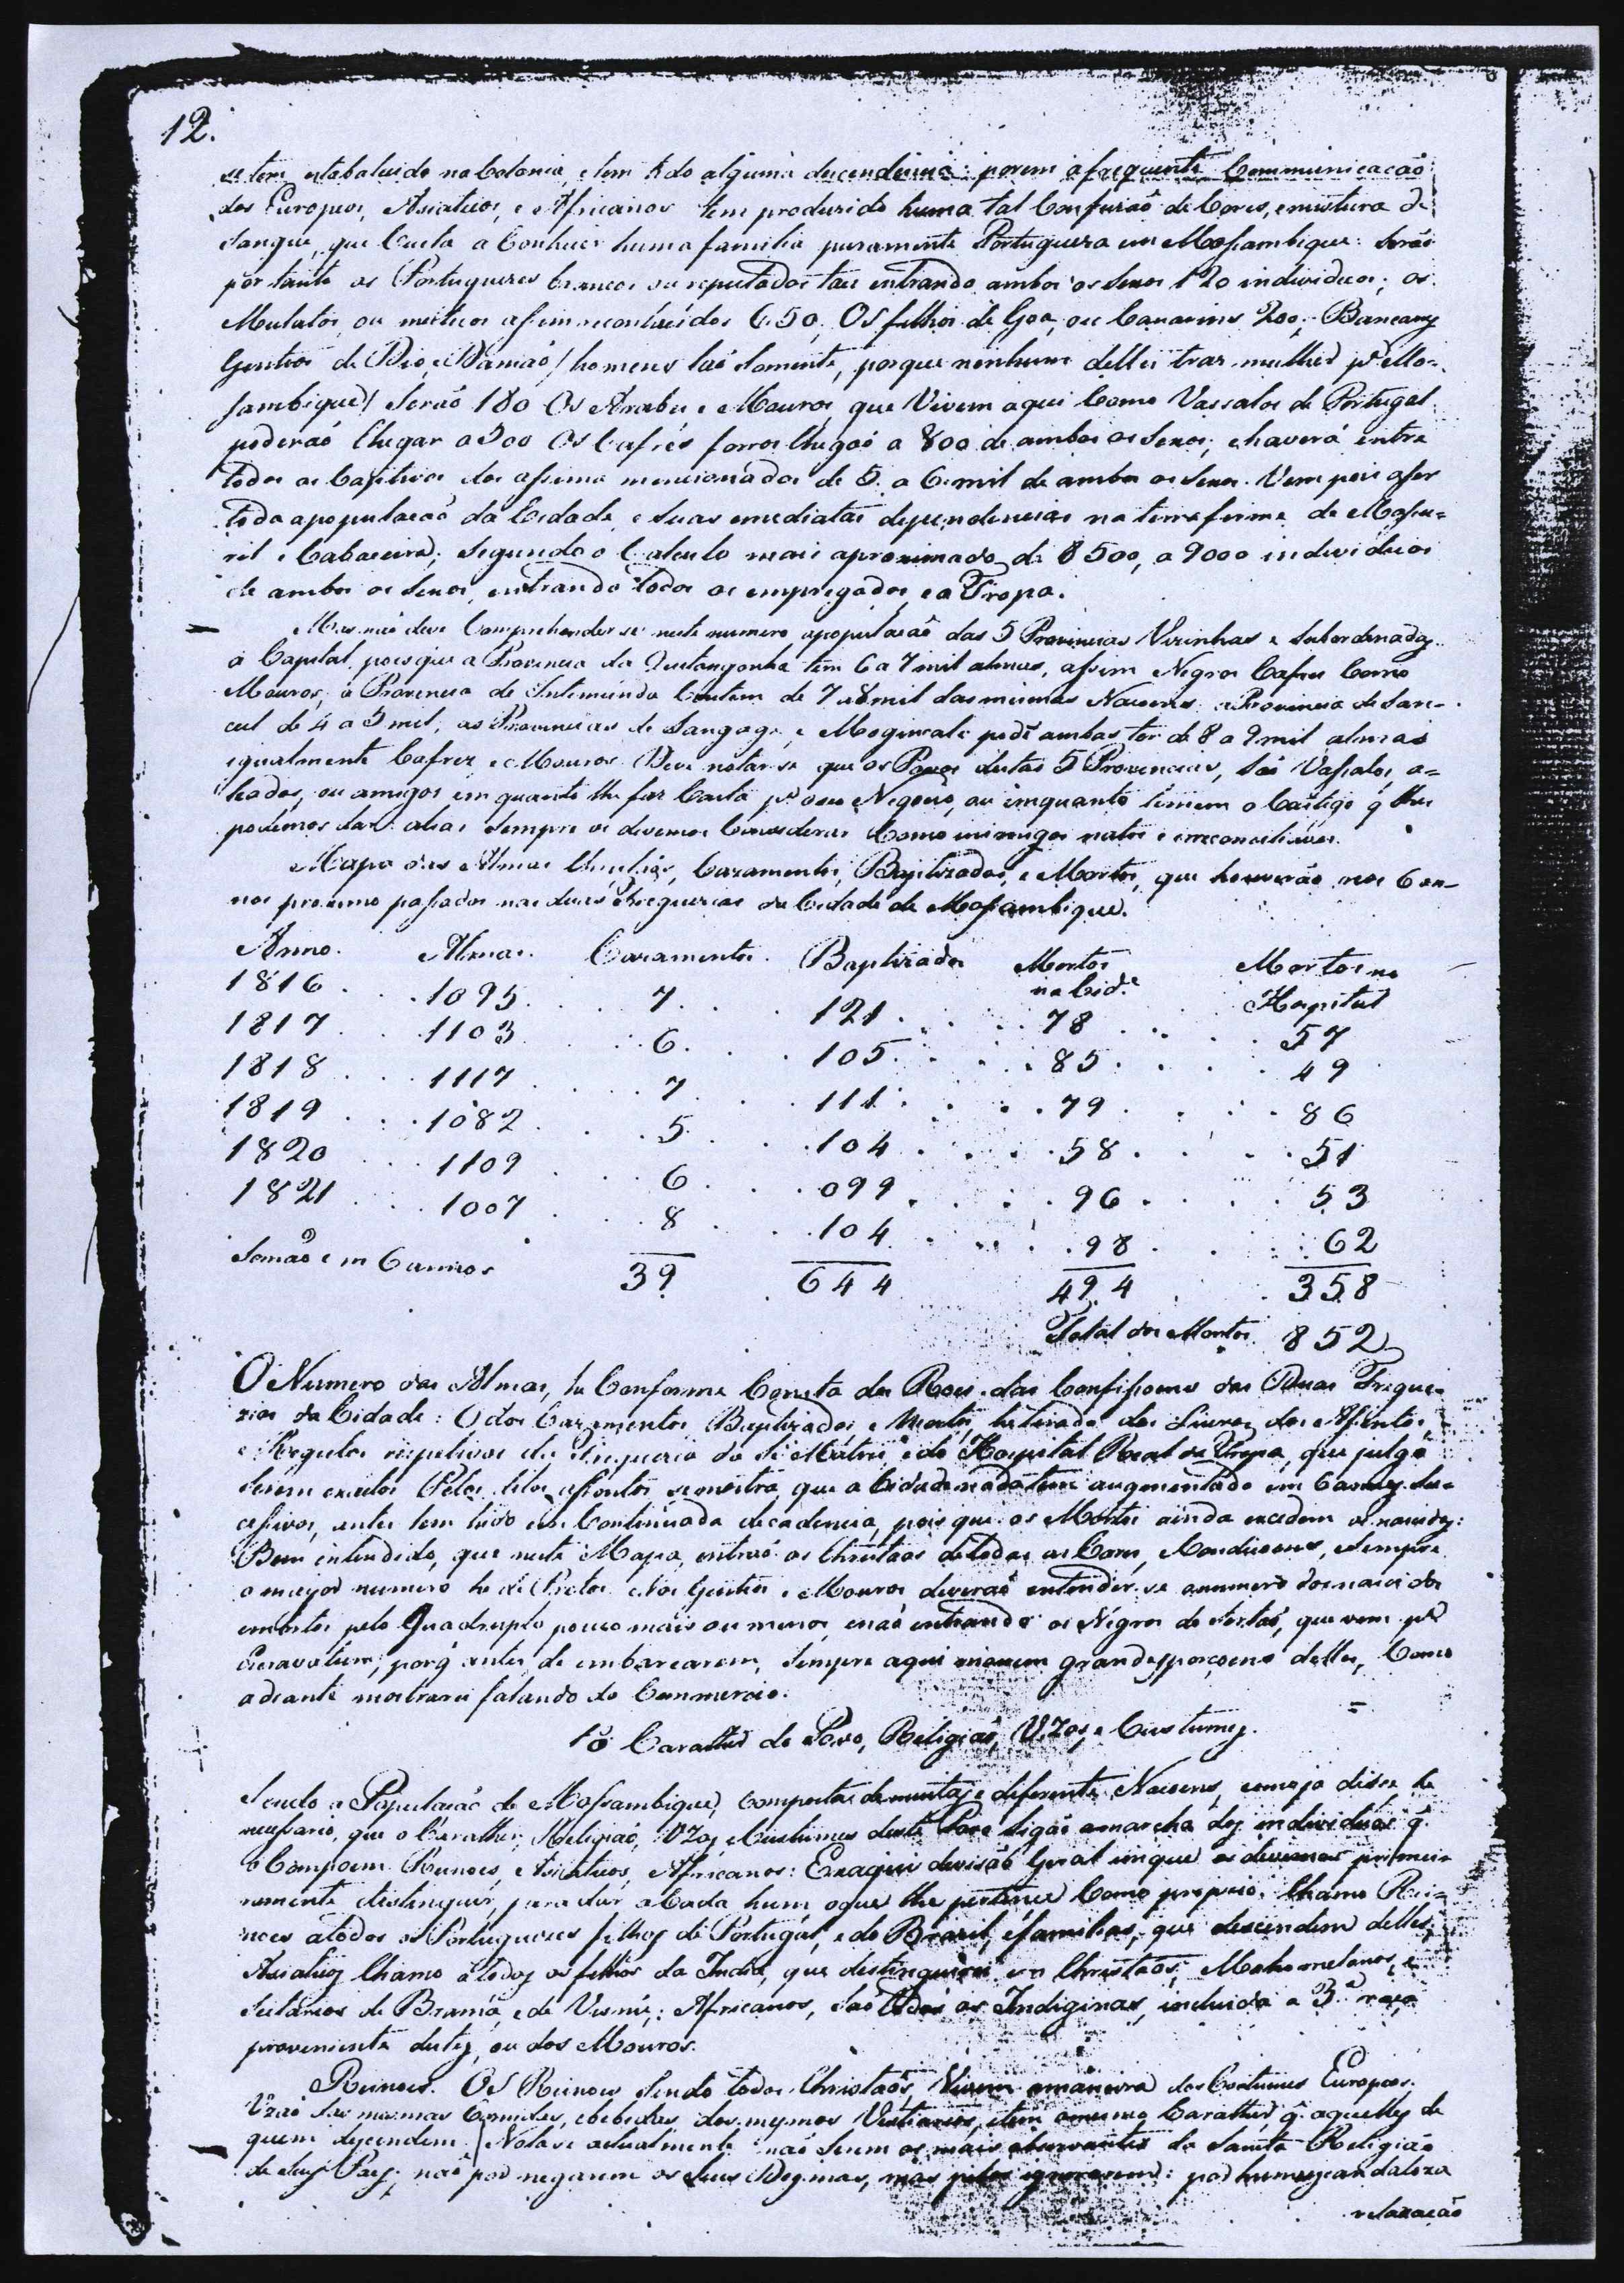 12.
se tem estabalecido na Colonia, e tem tido alguma descendencia: porem a frequente Communicacaõ
dos Europeos, Asiaticos, e Africanos tem produzido huma tal Confuzaõ de Cores, e mistura de
Sangue, que Custa a Conhecer huma familia puramente Portugueza em Mossambique: Seraõ
por tanto os Portuguezes brancos ou reputados taes entrando ambos os Sexos 120 individuos; os
Mulatos ou misticos assim reconhecidos 650, Os filhos de Goa, ou Canarins 200; Baneanes
Gentios de Dio, e Damaõ / homens taõ Somente, porque nenhum delles tras mulher pª Mo-
sambique / Seraõ 180 Os Arabes e Mouros, que Vivem aqui Como Vassalos de Portugal
poderaõ Chegar a 500 Os Cafres forros Chegaõ a 800 de ambos os Sexos; e haverá entre
todos os Captivos dos assima mencionados de 5 a 6 mil de ambos os Sexos. Vem pois a ser
toda a populacaõ da Cidade, e Suas imediatas dependencias na terra firme de Mossu-
ril e Cabaceira; Segundo o Calculo mais aproximado de 8500, a 9000 individuos
de ambos os Sexos, entrando todos os empregados, e a Tropa.
Mas naõ deve Comprehender-se neste numero a populacaõ das 5 Provincias Vizinhas e Subordenadas
á Capital, pois que a Provincia da Quitangonha tem 6 a 7 mil almas, assim Negros Cafres Como
Mouros; a Provincia de Intimúndo Contem de 7 a 8 mil das mesmas Nacoens; a Provincia de San-
cul de 4 a 5 mil; as Provincias de Sangage, e Mogincale podē ambas ter de 8 a 9 mil almas
igualmente Cafres e Mouros Deve notar-se que os Povos destas 5 Provincias, Saõ Vassalos, a-
liados, ou amigos em quanto lhe faz Conta pª o seu Negocio, ou emquanto temem o Castigo q̃ lhes
podemos dar: alias Sempre os devemos Considerar Como inimigos natos e irreconciliaveis.
Mapa das Almas Christãs, Cazamentos, Baptizados, e Mortos, que houveraõ nos 6 an-
nos proximo passados nas duas Freguezias da Cidade de Mossambique.
Anno. Almas. Cazamentos. Baptizados Mortos na Cid.ᵉ Mortos no Hospital
1816 . . 1095 . . 7 . . 121 . . 78 . . 57
1817 . . 1103 . . 6 . . 105 . . 85 . . 49
1818 . . 1117 . . 7 . . 111 . . 79 . . 86
1819 . . 1082 . . 5 . . 104 . . 58 . . 51
1820 . . 1109 . . 6 . . 099 . . 96 . . 53
1821 . . 1007 . . 8 . . 104 . . 98 . . 62
Somaõ em 6 annos 39 644 494 358
Total dos Mortos 852
O Numero das Almas, he Conforme Consta dos Roes das Confissoens das Duas Fregue-
zias da Cidade: O dos Cazamentos, Baptizados, e Mortos, he tirado dos Livros dos Assentos,
e Regulos respetivos da Freguezia da Sé Matriz, e do Hospital Real da Tropa, que julgo
Serem exactos Pelos ditos assentos se mostra que a Cidade nada tem augmentado em 6 annos Su-
cessivos, antes tem hido em Continuada decadencia, pois que os Mortos ainda excedem os nascidos:
Bem entendido, que neste Mapa, entraõ os Christaos de todas as Cores, e Condicoens, e Sempre
o mayor numero he de Pretos. Nos Gentios e Mouros deveraõ entender-se o numero dos nascidos
e mortos pelo Quadruplo pouco mais ou menos, e naõ entrando os Negros do Sertaõ, que vem pª
Escravatura, porq̃ antes de embarcarem, Sempre aqui morrem grandes porçoens delles, Como
adeante mostrarei falando do Commercio.
1ō Caratter do Povo, Religiaõ, Uzos, e Custumes.
Sendo a Populacaõ de Mossambique, Composta de muitas e diferentes Nacoens, como ja disse, he
necessario, que o Caratter, Religiaõ, Uzos, e Custumes deste Povo Sigaõ a marcha dos individuos q̃
o Compoem. Reinoes, Asiaticos, Africanos: Eis aqui divisaõ Geral em que os devemos primei-
ramente destinguir, para dar a Cada hum, o que lhe pertence Como proprio. Chamo Rei-
noes a todos os Portuguezes filhos de Portugal, e do Brazil, e familias, que descendem delles;
Asiaticos Chamo a todos os filhos da India, que destinguirei em Christaõs, Mahometanos, e
Sectarios de Bramá, e de Visnú; Africanos, Saõ todos os Indiginas, incluida a 3ª raça
proveniente destes, ou dos Mouros.
Reinoes. Os Reinoes Sendo todos Christaõs, Vivem a maneira dos Costumes Europeos.
Uzaõ das mesmas Comidas, e bebidas dos mesmos Vestiarios, e tem o mesmo Caratter q̃ aquelles de
quem descendem. Nota-se actualmente naõ Serem os mais observantes da Santa Religiaõ
de Seus Pays; naõ por negarem os Seus Dogmas, mas pelos ignorarem: por huma escandaloza
relaxacaõ